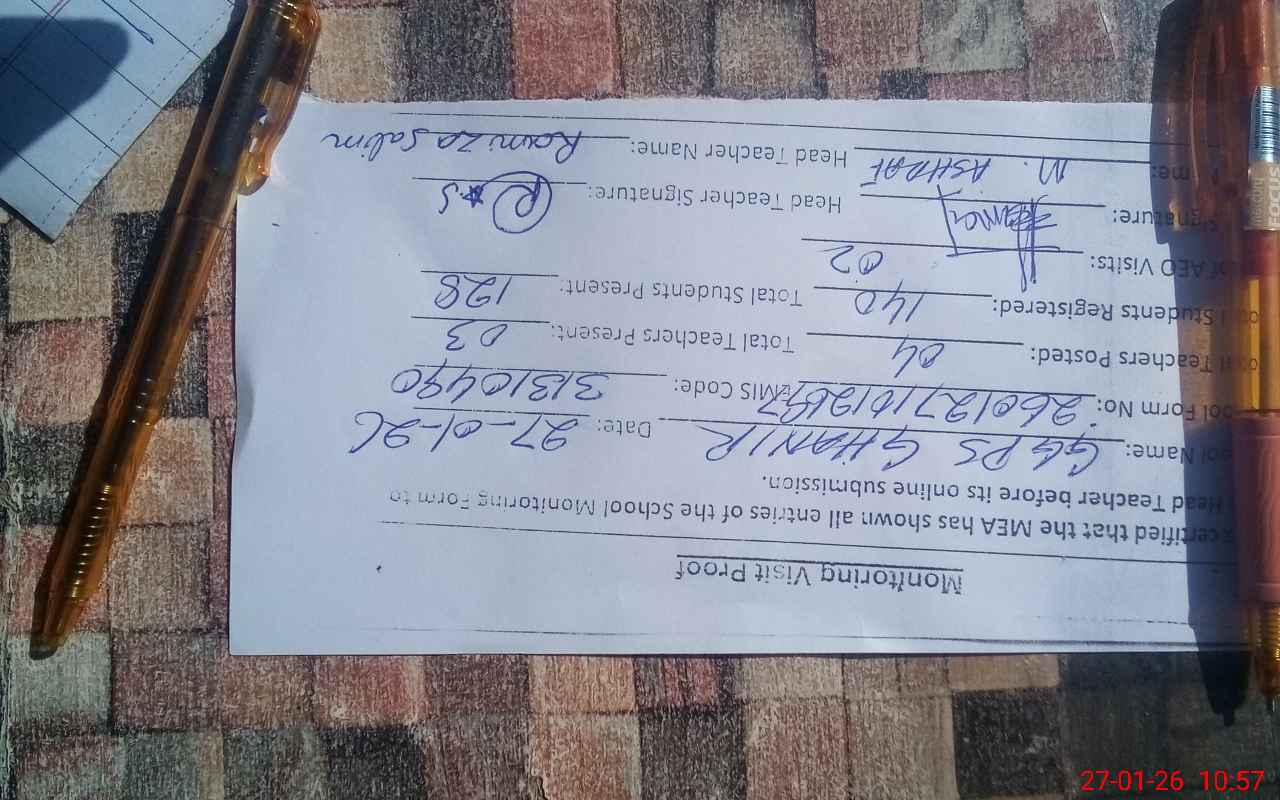 Monitoring Visit Proof
certified that the MEA has shown all entries of the School Monitoring Form to
Head Teacher before its online submission.
ool Name: GGPS GHANIR Date: 27-01-26
ool Form No: EMIS Code: 31310490
Teachers Posted: 04 Total Teachers Present: 03
Students Registered: 140 Total Students Present: 128
of AEO Visits: 02
Signature: Head Teacher Signature:
me: M. ASHRAF Head Teacher Name: Ramiza Salim
27-01-26 10:57